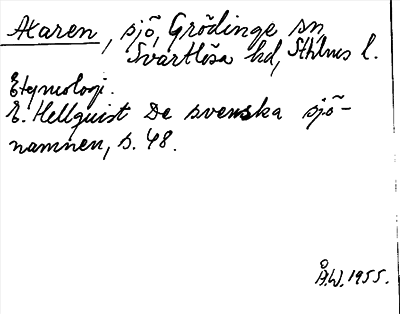 Axaren, sjö, Grödinge sn
Svartlösa hd, Sthlms l.
Etymologi.
E. Hellquist De svenska sjö-
namnen, s. 48.
Å.W. 1955.